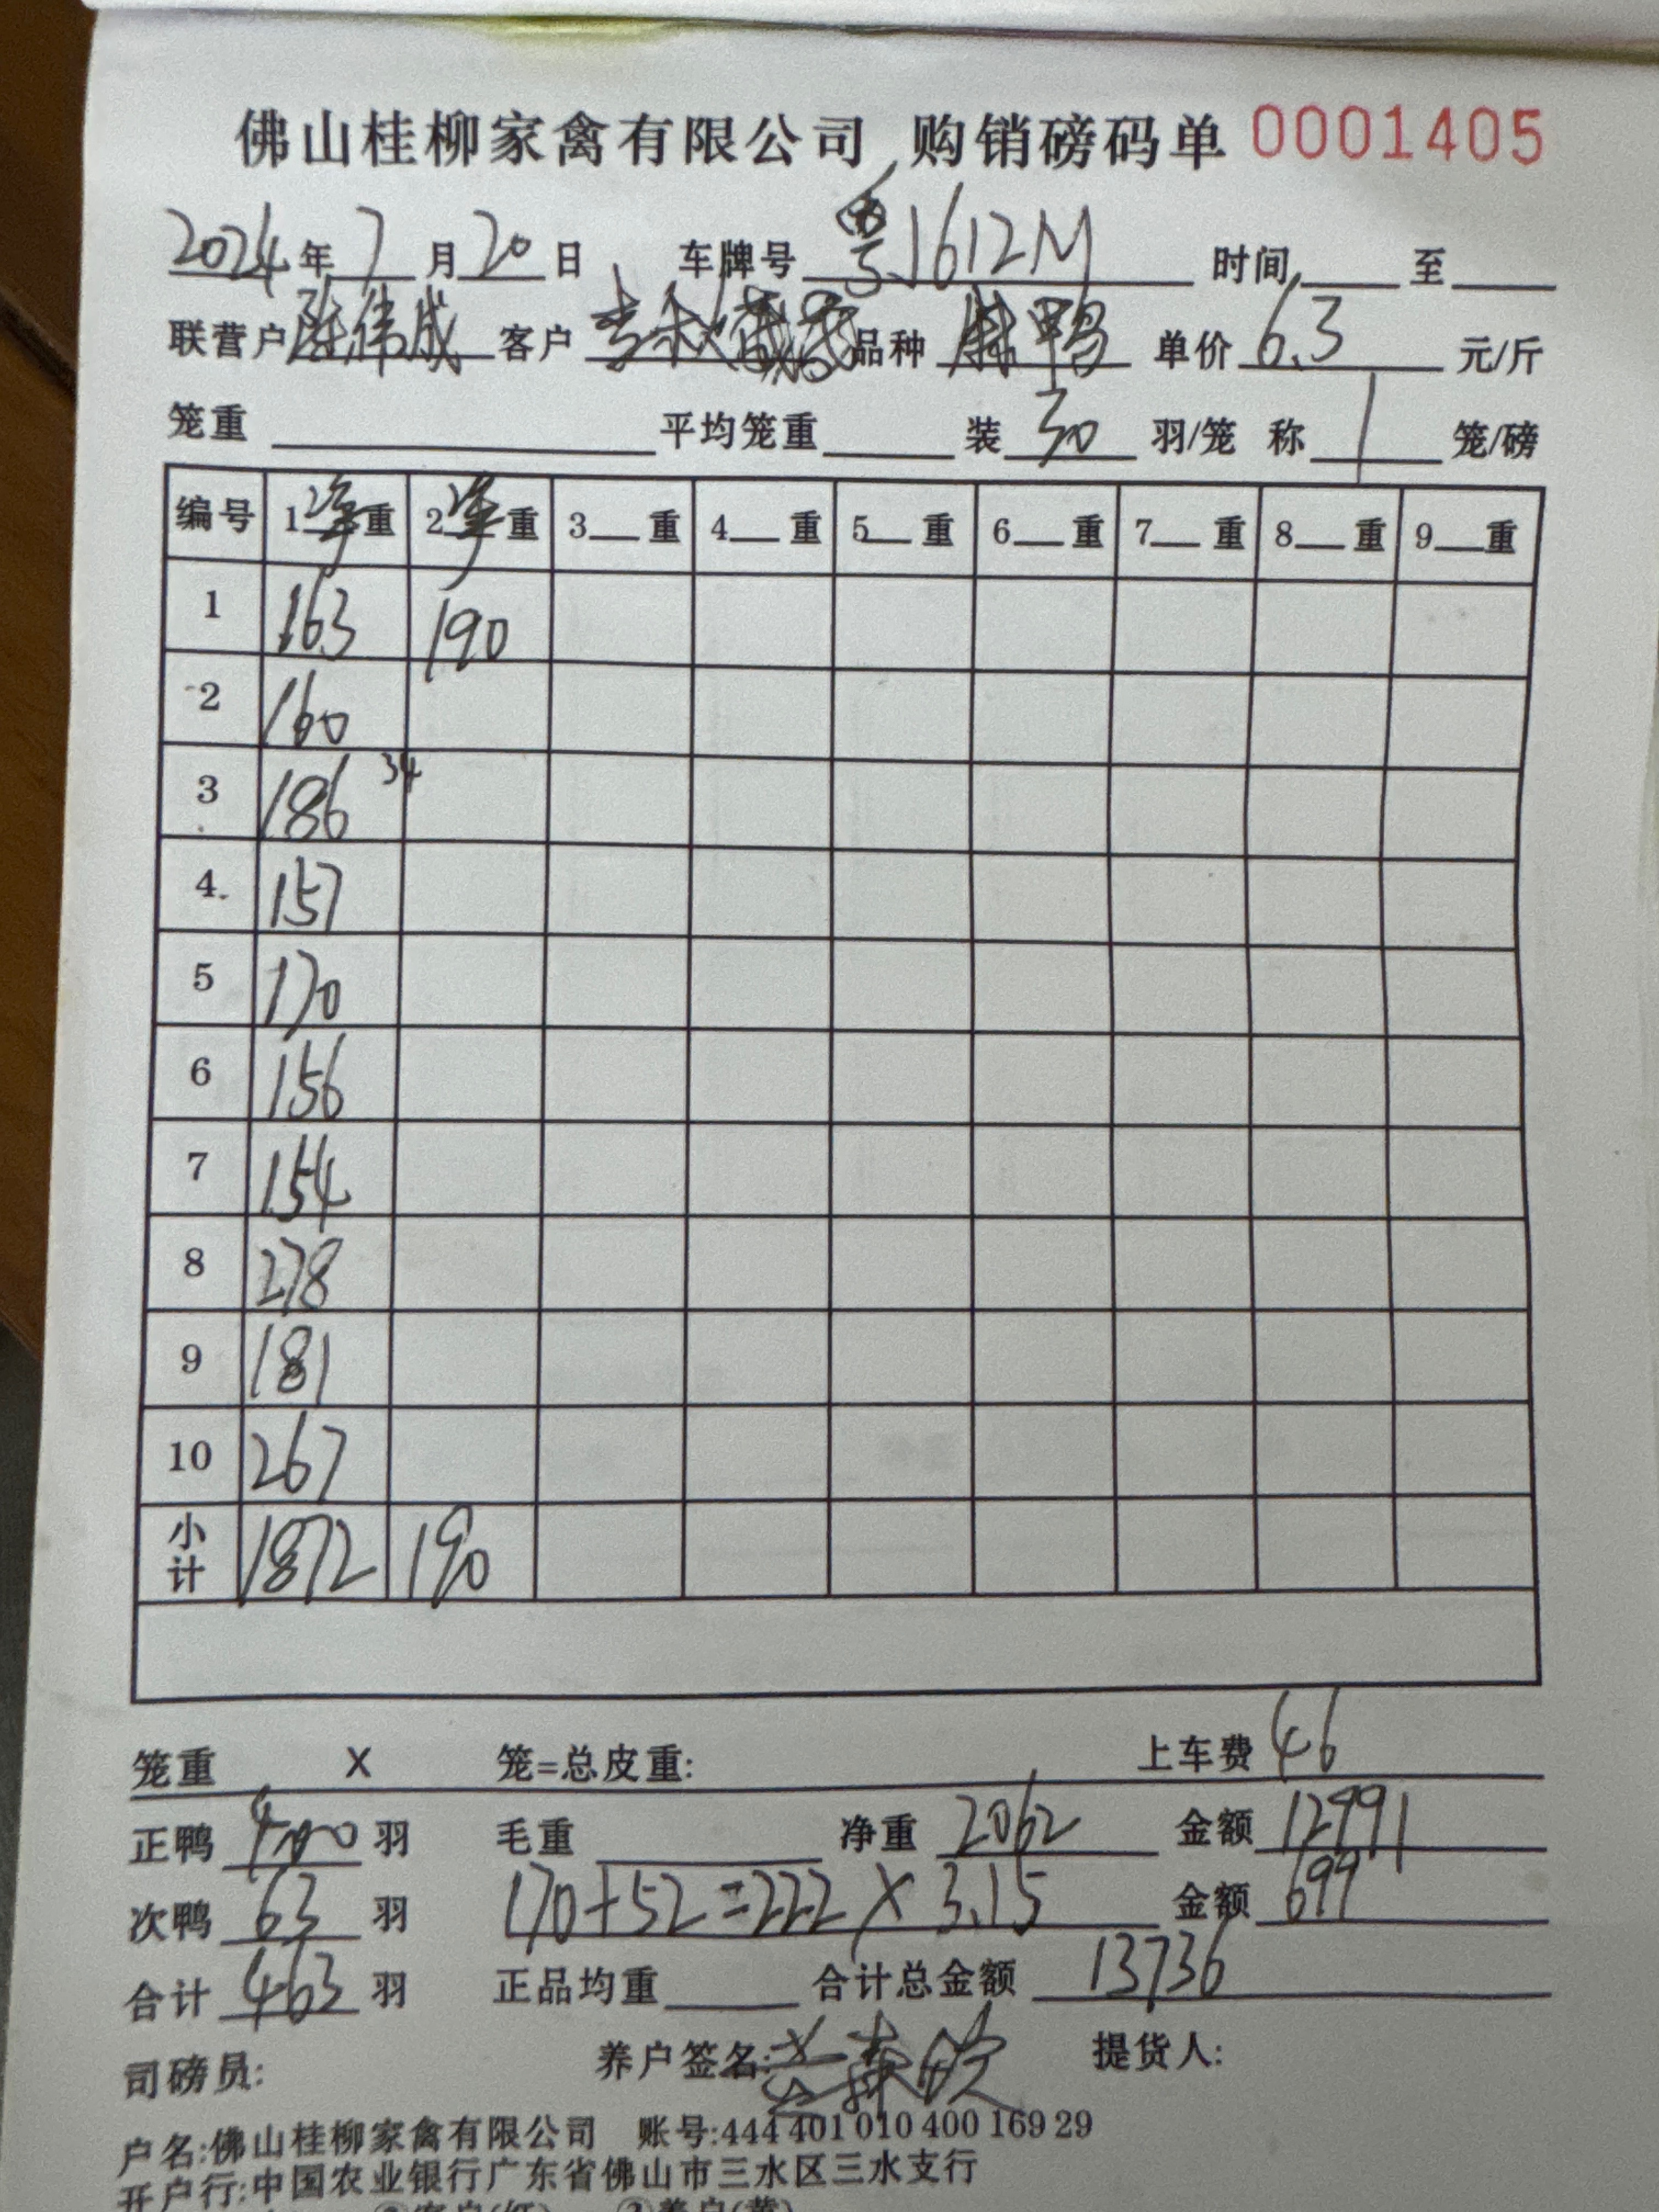 佛山桂柳家禽有限公司 购销磅码单 0001405
2024年7月20日 车牌号 粤J1612M 时间 至
联营户 陈伟成 客户 品种 麻鸭 单价 6.3 元/斤
笼重 平均笼重 装 30 羽/笼 称 1 笼/磅
编号 1净重 2净重 3 重 4 重 5 重 6 重 7 重 8 重 9 重
1 163 190
2 160
3 186 34
4 157
5 170
6 156
7 154
8 278
9 181
10 267
小计 1872 190
笼重 X 笼=总皮重: 上车费 46
正鸭 400 羽 毛重 净重 2062 金额 12991
次鸭 63 羽 170+52=222×3.15 金额 699
合计 463 羽 正品均重 合计总金额 13736
司磅员: 养户签名: 提货人:
户名:佛山桂柳家禽有限公司 账号:444 401 010 400 169 29
开户行:中国农业银行广东省佛山市三水区三水支行
②客户(红) ③养户(黄)